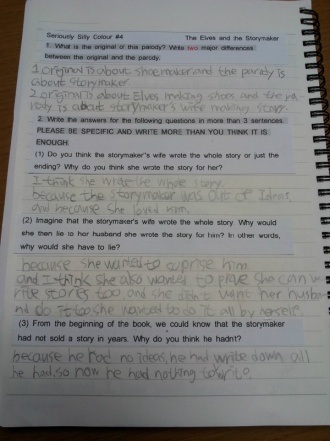 Seriously Silly Colour #4 The Elves and the Storymaker
1. What is the original of this parody? Write two major differences
between the original and the parody.
1. original is about shoemaker and the parody is
about storymaker
2. original is about Elves making shoes and the pa
rody is about storymaker's wife making storys.
2. Write the answers for the following questions in more than 3 sentences.
PLEASE BE SPECIFIC AND WRITE MORE THAN YOU THINK IT IS
ENOUGH.
(1) Do you think the storymaker's wife wrote the whole story or just the
ending? Why do you think she wrote the story for her?
I think she wrote the whole story
because the storymaker was out of Ideas,
and because she loved him.
(2) Imagine that the storymaker's wife wrote the whole story. Why would
she then lie to her husband she wrote the story for him? In other words,
why would she have to lie?
because she wanted to suprise him.
and I think she also wanted to prove she can w
rite stores too and she didn't want her husba
nd do it too she wanted to do it all by herself.
(3) From the beginning of the book, we could know that the storymaker
had not sold a story in years. Why do you think he hadnt?
because he had no ideas, he had write down all
he had, so now he had nothing to write.